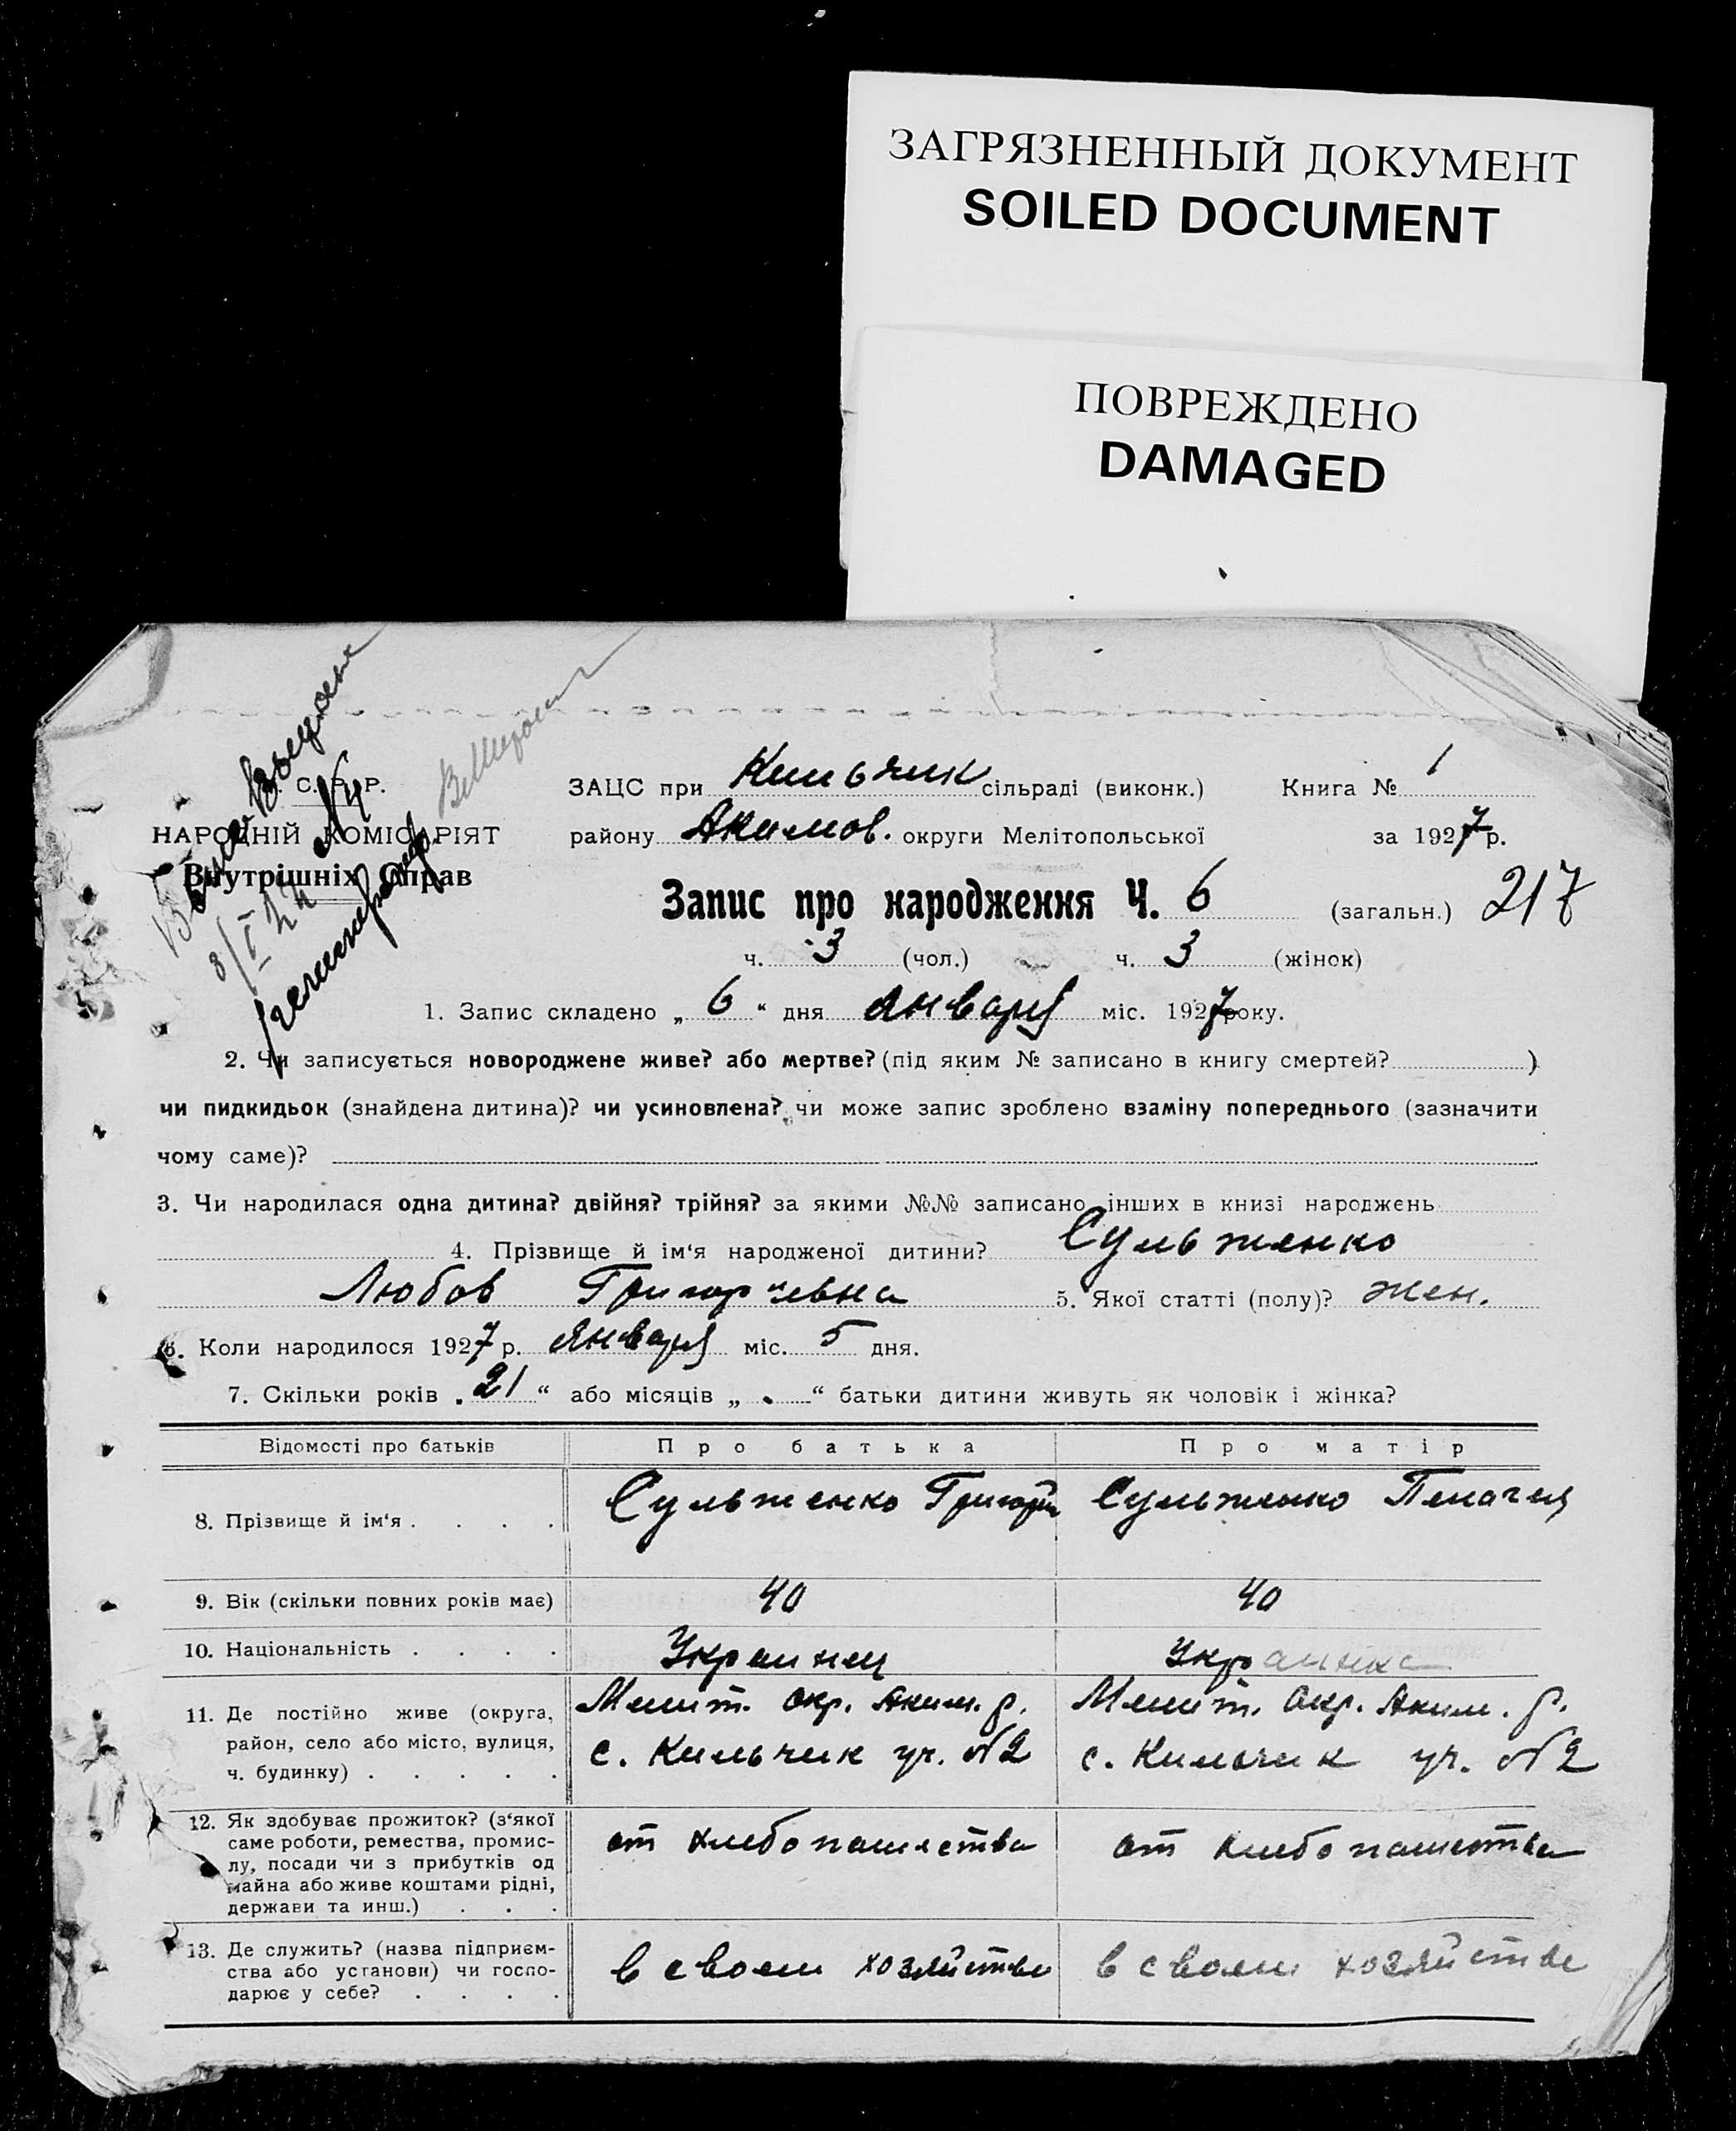 ЗАГРЯЗНЕННЫЙ ДОКУМЕНТ
SOILED DOCUMENT
ПОВРЕЖДЕНО
DAMAGED
С. Р. Р.
НАРОДНІЙ КОМІСАРІЯТ
Внутрішніх Справ
ЗАЦС при Кильчик сільраді (виконк.) Книга № 1
району Акимов. округи Мелітопольської за 1927 р.
Запис про народження Ч. 6 (загальн.) 217
ч. 3 (чол.) ч. 3 (жінок)
1. Запис складено „ 6 “ дня Января міс. 1927 року.
2. Чи записується новороджене живе? або мертве? (під яким № записано в книгу смертей? )
чи пидкидьок (знайдена дитина)? чи усиновлена? чи може запис зроблено взаміну попереднього (зазначити
чому саме)?
3. Чи народилася одна дитина? двійня? трійня? за якими №№ записано інших в книзі народжень
4. Прізвище й ім‘я народженої дитини? Сульженко
Любов Григорьевна 5. Якої статті (полу)? жен.
6. Коли народилося 1927 р. Января міс. 5 дня.
7. Скільки років „ 21 “ або місяців „ “ батьки дитини живуть як чоловік і жінка?
Відомості про батьків Про батька Про матір
8. Прізвище й ім‘я . . . . Сульженко Григорий Сульженко Пелагея
9. Вік (скільки повних років має) 40 40
10. Національність . . . . Украинец Украинка
11. Де постійно живе (округа, Мелит. окр. Аким. р. Мелит. окр. Аким. р.
район, село або місто, вулиця, с. Кильчик уч. №2 с. Кильчик уч. №2
ч. будинку) . . . . .
12. Як здобуває прожиток? (з‘якої
саме роботи, ремества, промис- от хлебопашества от хлебопашества
лу, посади чи з прибутків од
майна або живе коштами рідні,
держави та инш.) . . .
13. Де служить? (назва підприєм-
ства або установи) чи госпо- в своем хозяйстве в своем хозяйстве
дарює у себе? . . . .